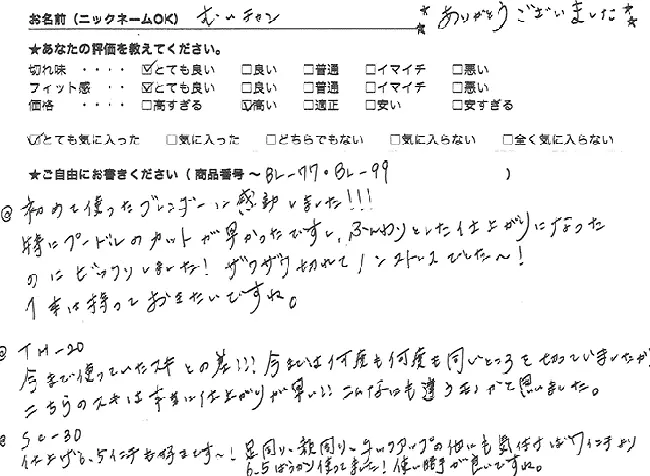 お名前(ニックネームOK) むぃチャン ☆ありがとうございました☆
★あなたの評価を教えてください。
切れ味 ・・・・ ☑とても良い □良い □普通 □イマイチ □悪い
フィット感 ・・・・ ☑とても良い □良い □普通 □イマイチ □悪い
価格 ・・・・ □高すぎる ☑高い □適正 □安い □安すぎる
☑とても気に入った □気に入った □どちらでもない □気に入らない □全く気に入らない
★ご自由にお書きください(商品番号〜BL-77・BL-99 )
◎初めて使ったブレンダーに感動しました!!!
特にプードルのカットが早かったですし、ふんわりとした仕上がりになった
のにビックリしました! ザクザク切れてノンストレスでした〜!
1本は持っておきたいですね。
◎TH-20
今まで使っていたスキとの差!!! 今までは何度も何度も同じところを切っていましたが
こちらのスキは本当に仕上がりが早い!! こんなにも違うものかと思いました。
◎SC-30
仕上げも、5インチも好きです〜! 足周り、顔周り、チェックアップの他にも気付けば7インチより
6.5ばっかり使ってました! 使い勝手が良いですね